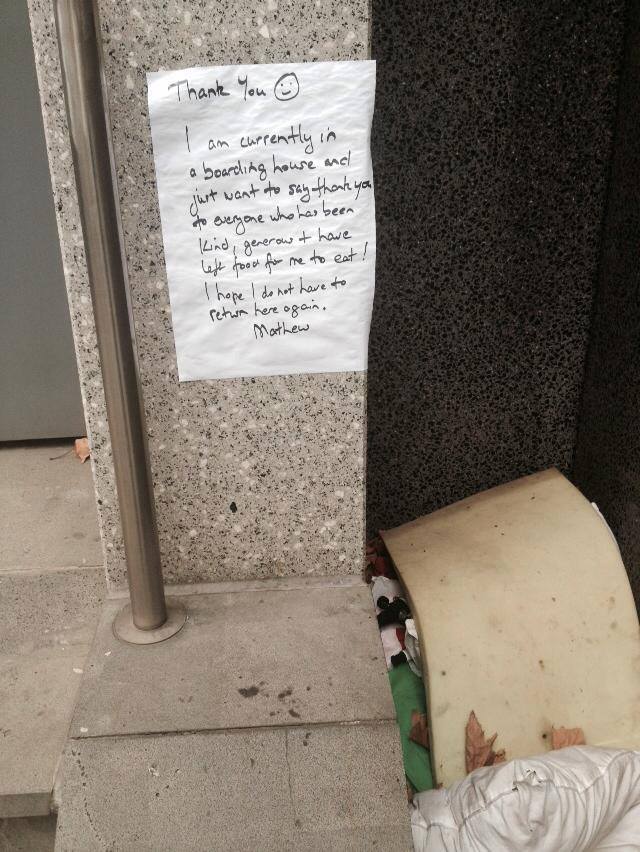 Thank You ☺
I am currently in
a boarding house and
just want to say thank you
to everyone who has been
kind, generous + have
left food for me to eat!
I hope I do not have to
return here again.
Mathew